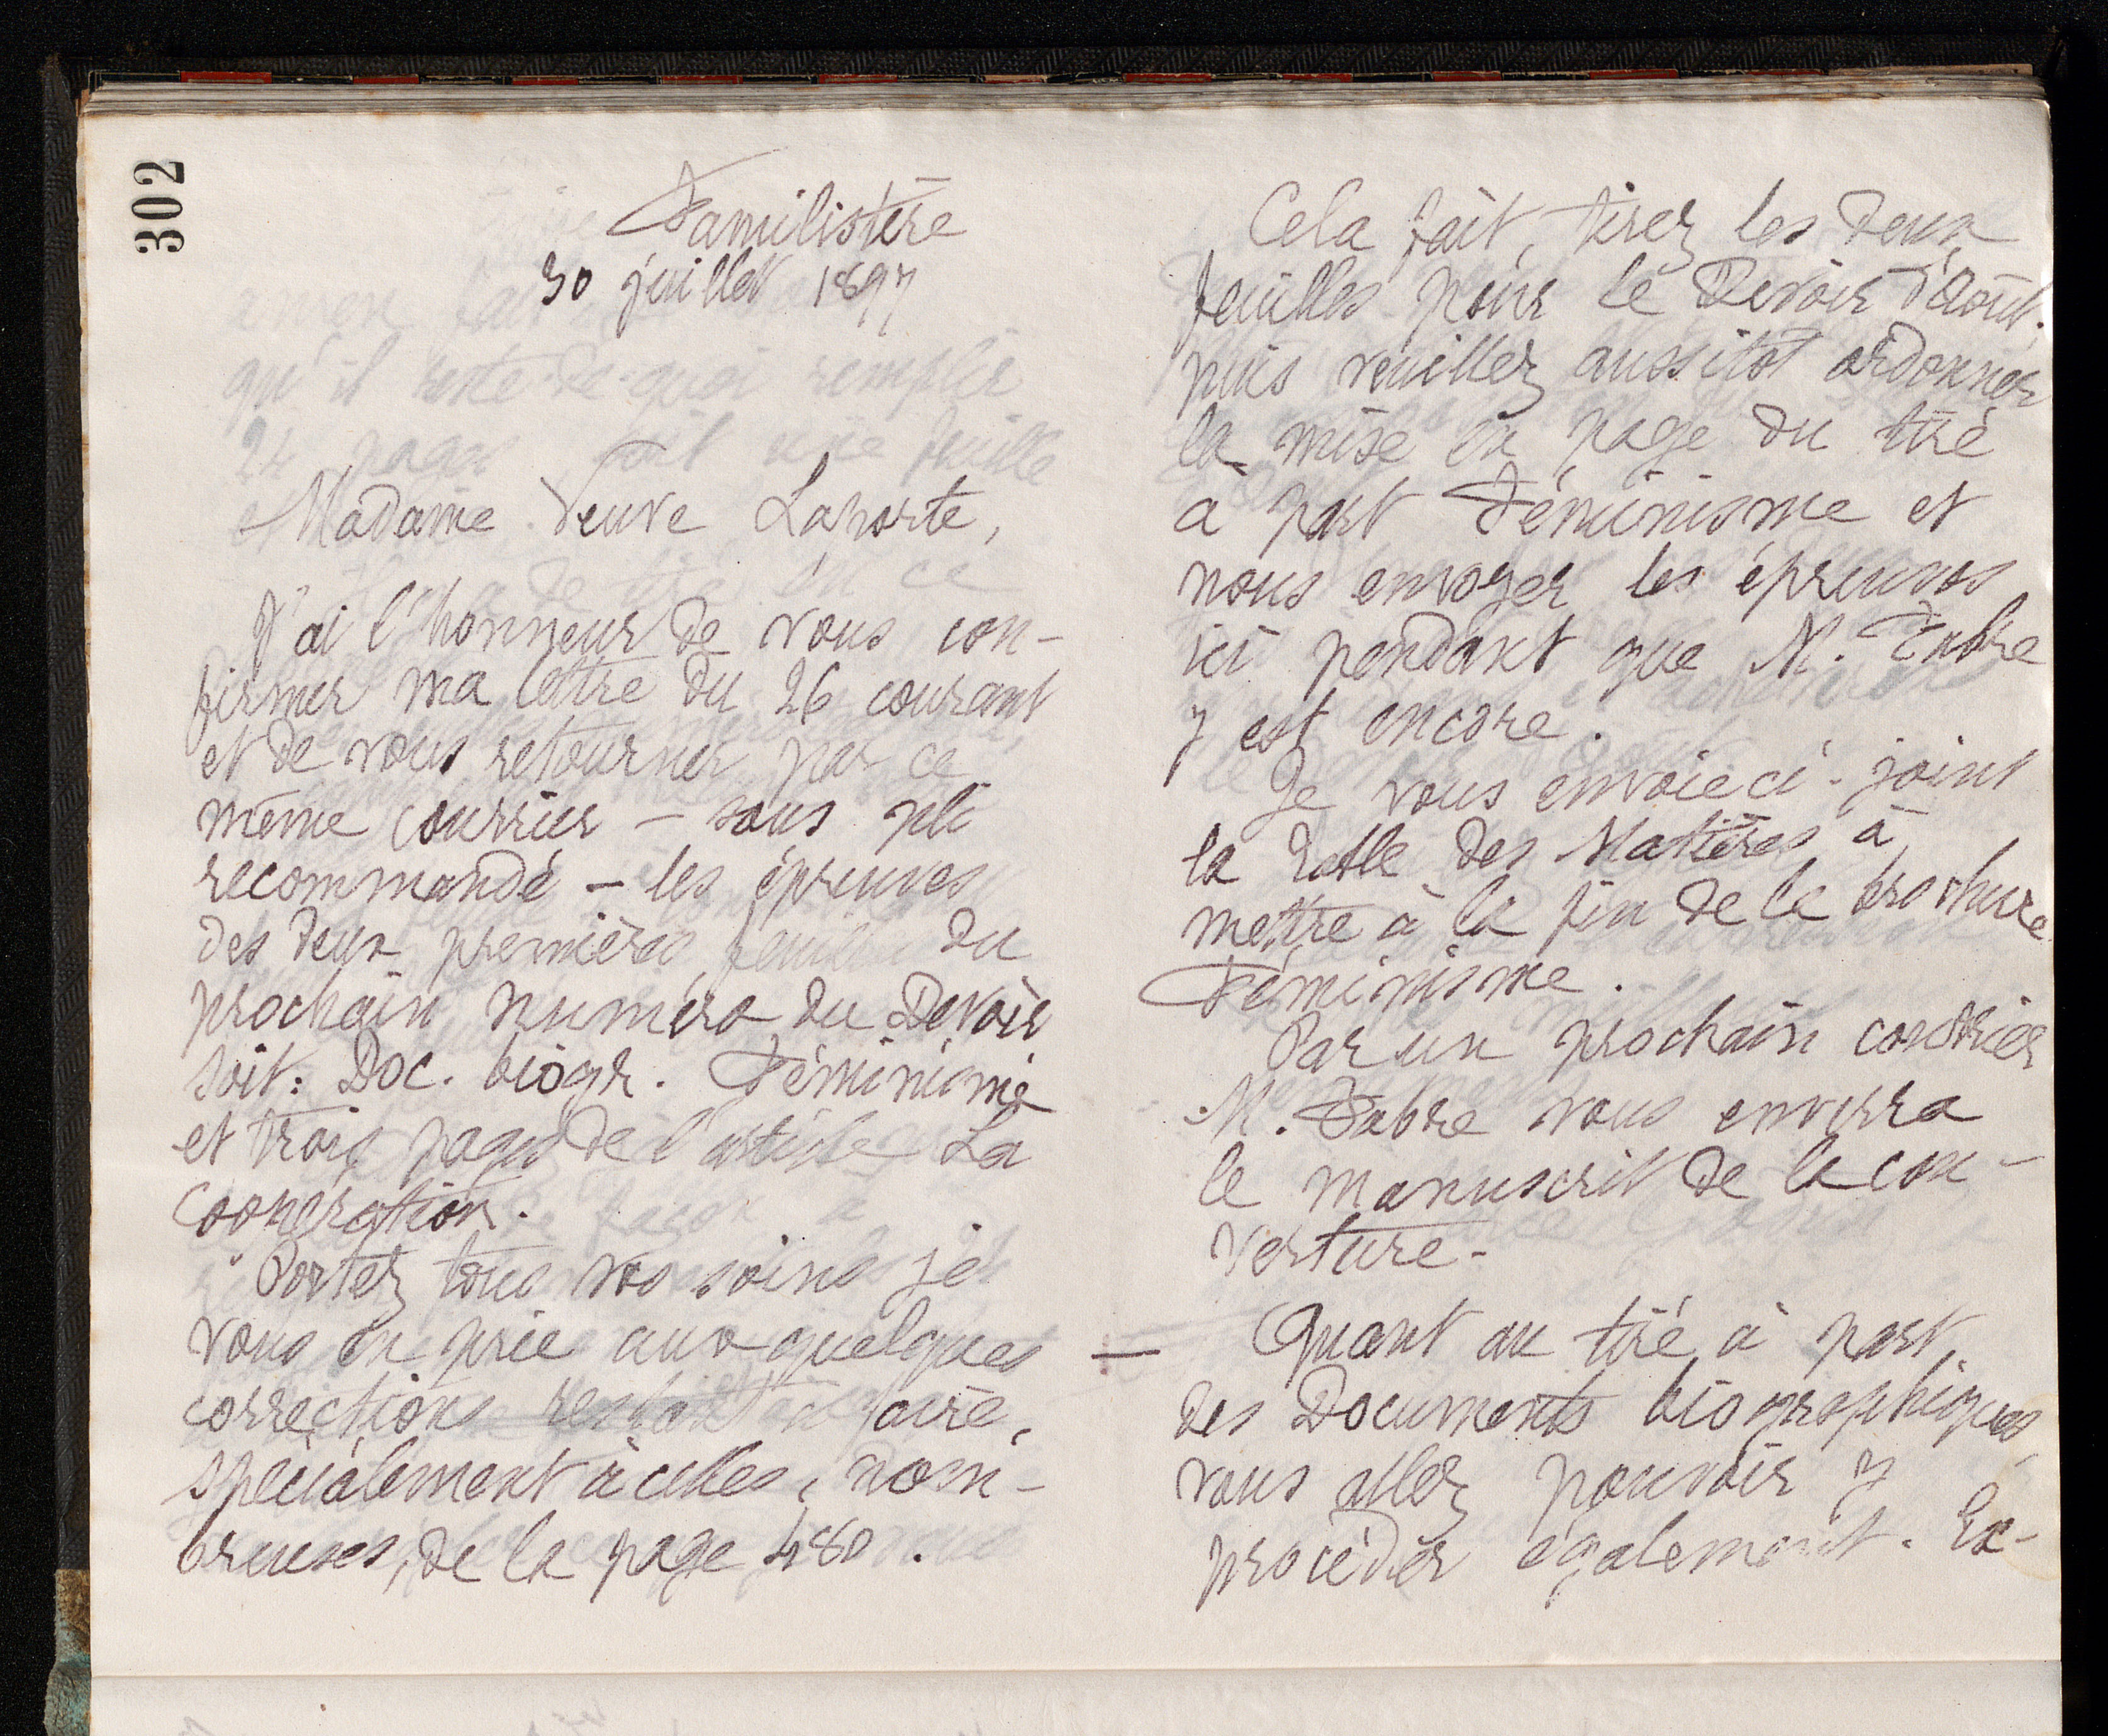 302
Familistère
30 juillet 1897
Madame Veuve Laporte,
J'ai l'honneur de vous con-
firmer ma lettre du 26 courant
et de vous retourner par ce
même courrier – sous pli
recommandé – les épreuves
des deux premières feuilles du
prochain numéro du Devoir
soit: Doc. biogr. Féminisme
et trois pages de l'article La
Coopération.
Portez tous vos soins je
vous en prie aux quelques
corrections restant à faire,
spécialement à celles, nom-
breuses, de la page 480.
Cela fait, tirez les deux
feuilles pour le Devoir d'août.
puis veuillez aussitôt ordonner
la mise en page du tiré
à part Féminisme et
nous envoyer les épreuves
ici pendant que M. Fabre
y est encore.
Je vous envoie ci-joint
la table des Matières à
mettre à la fin de la brochure
Féminisme.
Par un prochain courrier
M. Fabre vous enverra
le manuscrit de la cou-
verture.
— Quant au tiré à part
des Documents biographiques,
vous allez pouvoir y
procéder également. Ex-